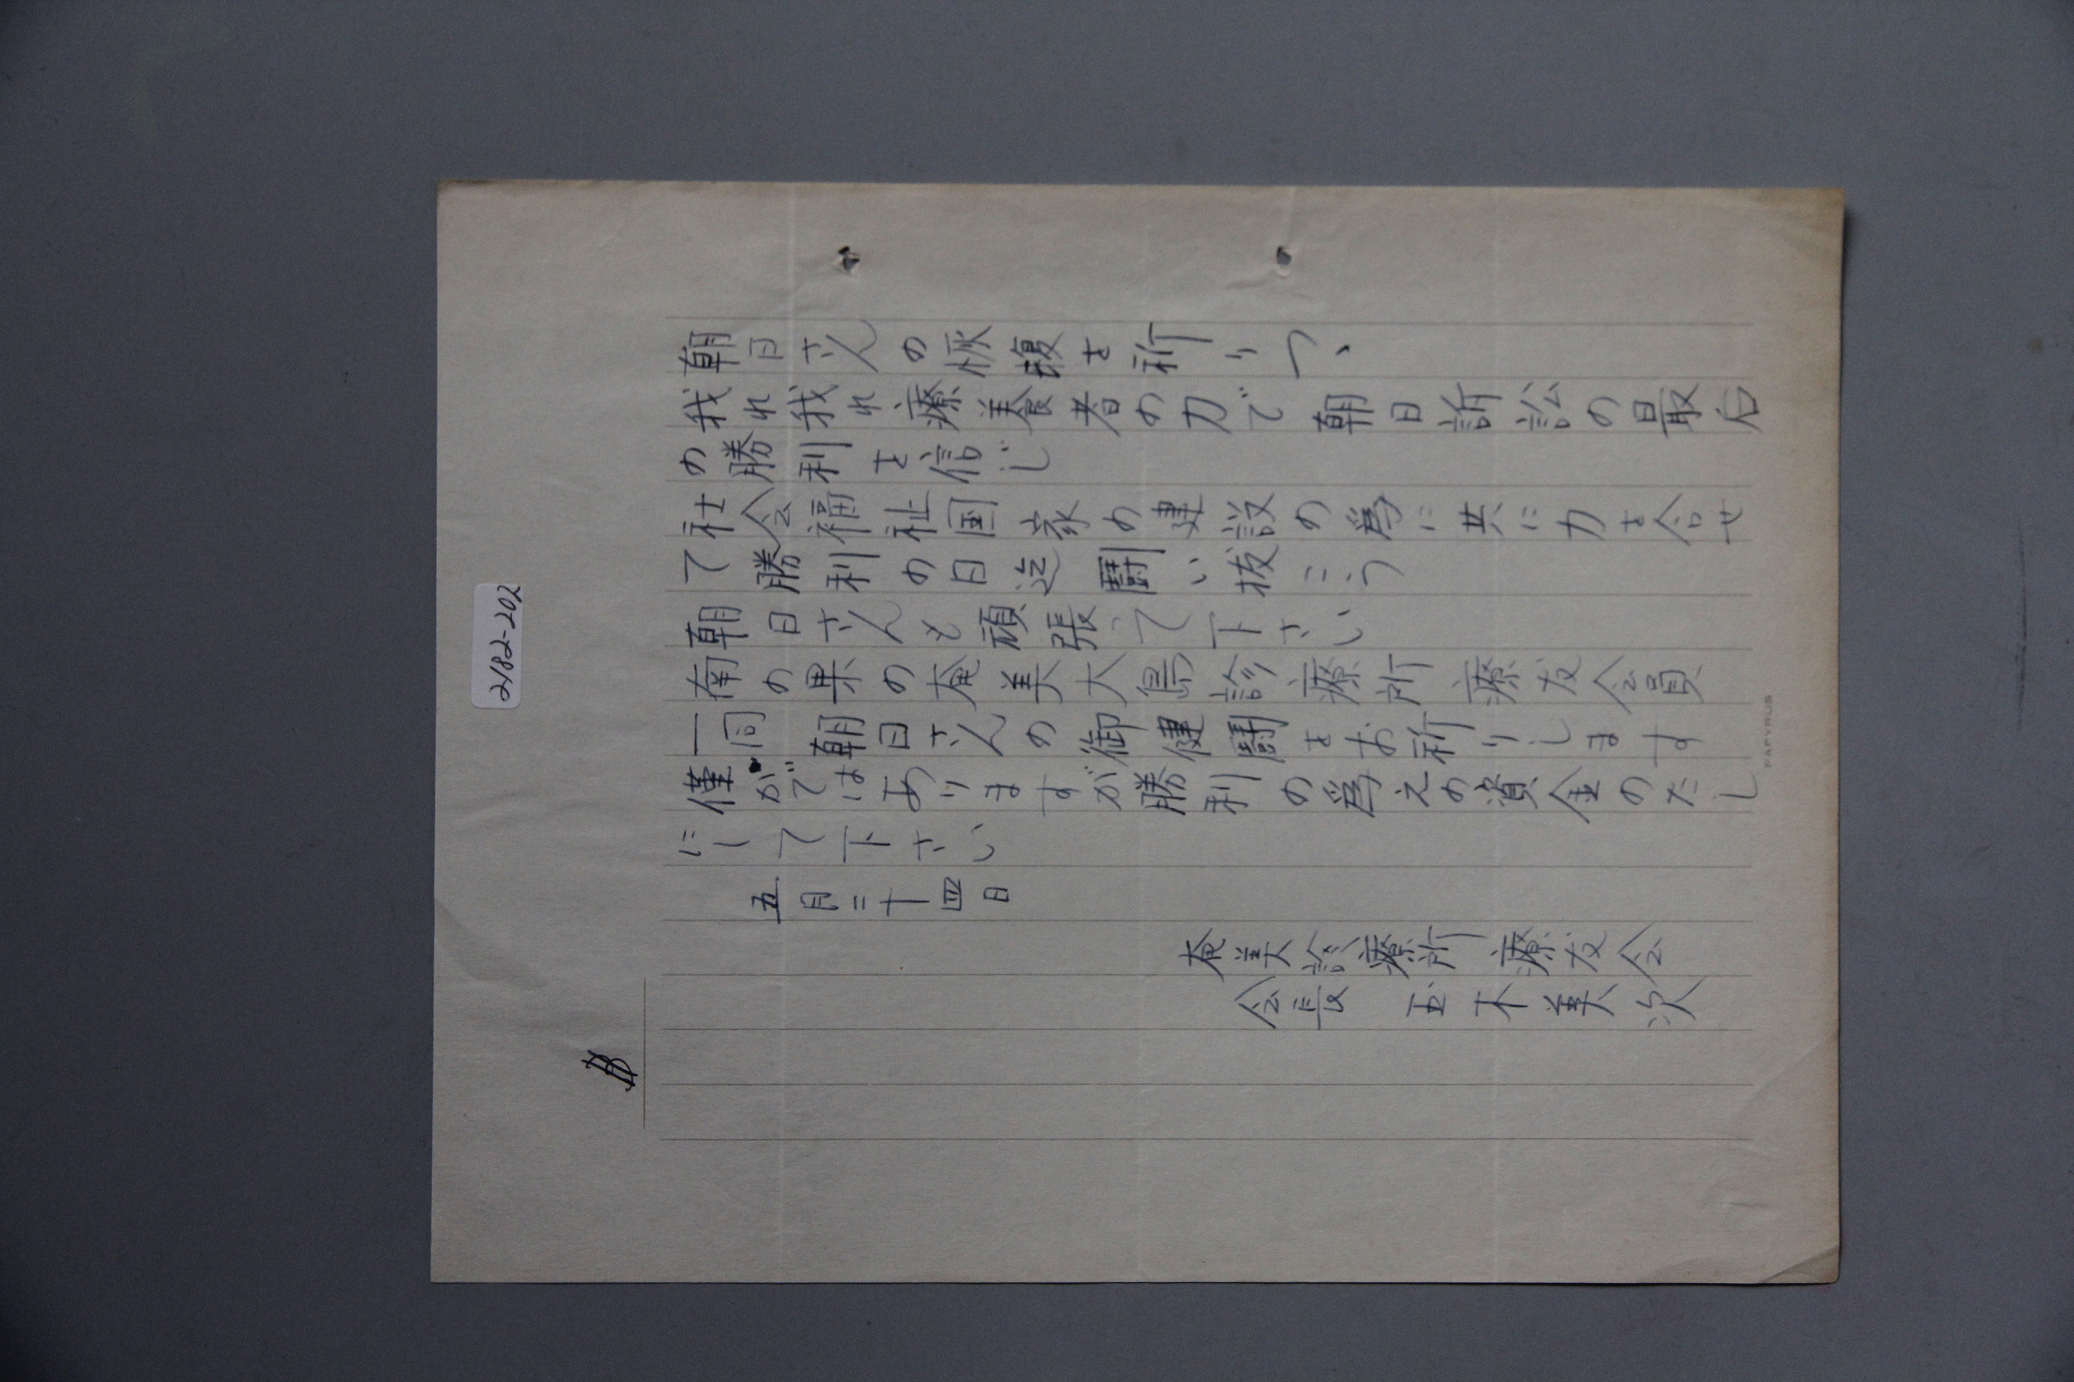 2182-202
朝日さんの恢復を祈りつゝ
我れ我れ療養者の力で朝日訴訟の最后
の勝利を信じ
社会福祉国家の建設の為に共に力を合せ
て勝利の日迄闘い抜こう
朝日さんも頑張って下さい
南の果の奄美大島診療所療友会員
一同 朝日さんの御健闘をお祈りします
僅かではありますが勝利の為えの資金のたし
にして下さい
五月二十四日
奄美診療所 療友会
会長 玉木美次
PAPYRUS